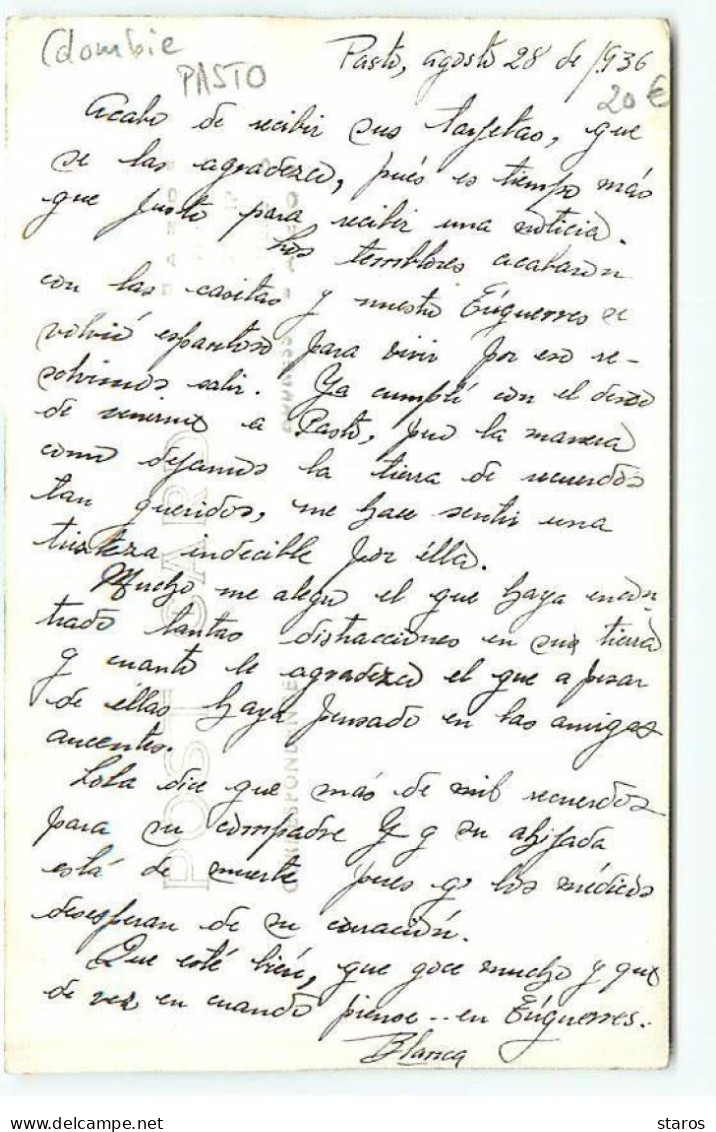 Colombie
PASTO
Pasto, agosto 28 de 1936
20 €
Acabo de recibir sus tarjetas, que
se las agradezco, pués es tiempo más
que justo para recibir una noticia.
Los temblores acabaron
con las casitas y nuestro Túquerres se
volvió espantoso para vivir por eso re-
solvimos salir. Ya cumplí con el deseo
de venirme a Pasto, pero la manera
como dejamos la tierra de recuerdos
tan queridos, me hace sentir una
tristeza indecible por élla.
Mucho me alegro el que haya encon-
trado tantas distracciones en sus tierra
y cuanto le agradezco el que a pesar
de éllas haya pensado en las amigas
aucentes.
Lola dice que más de mil recuerdos
para su compadre y q su ahijada
está de muerte pues q. los médicos
desesperan de su curación.
Que esté bien, que goce mucho y que
de vez en cuando piense .. en Túquerres.
Blanca
POST CARD
CORRESPONDENCE
ADDRESS
staros